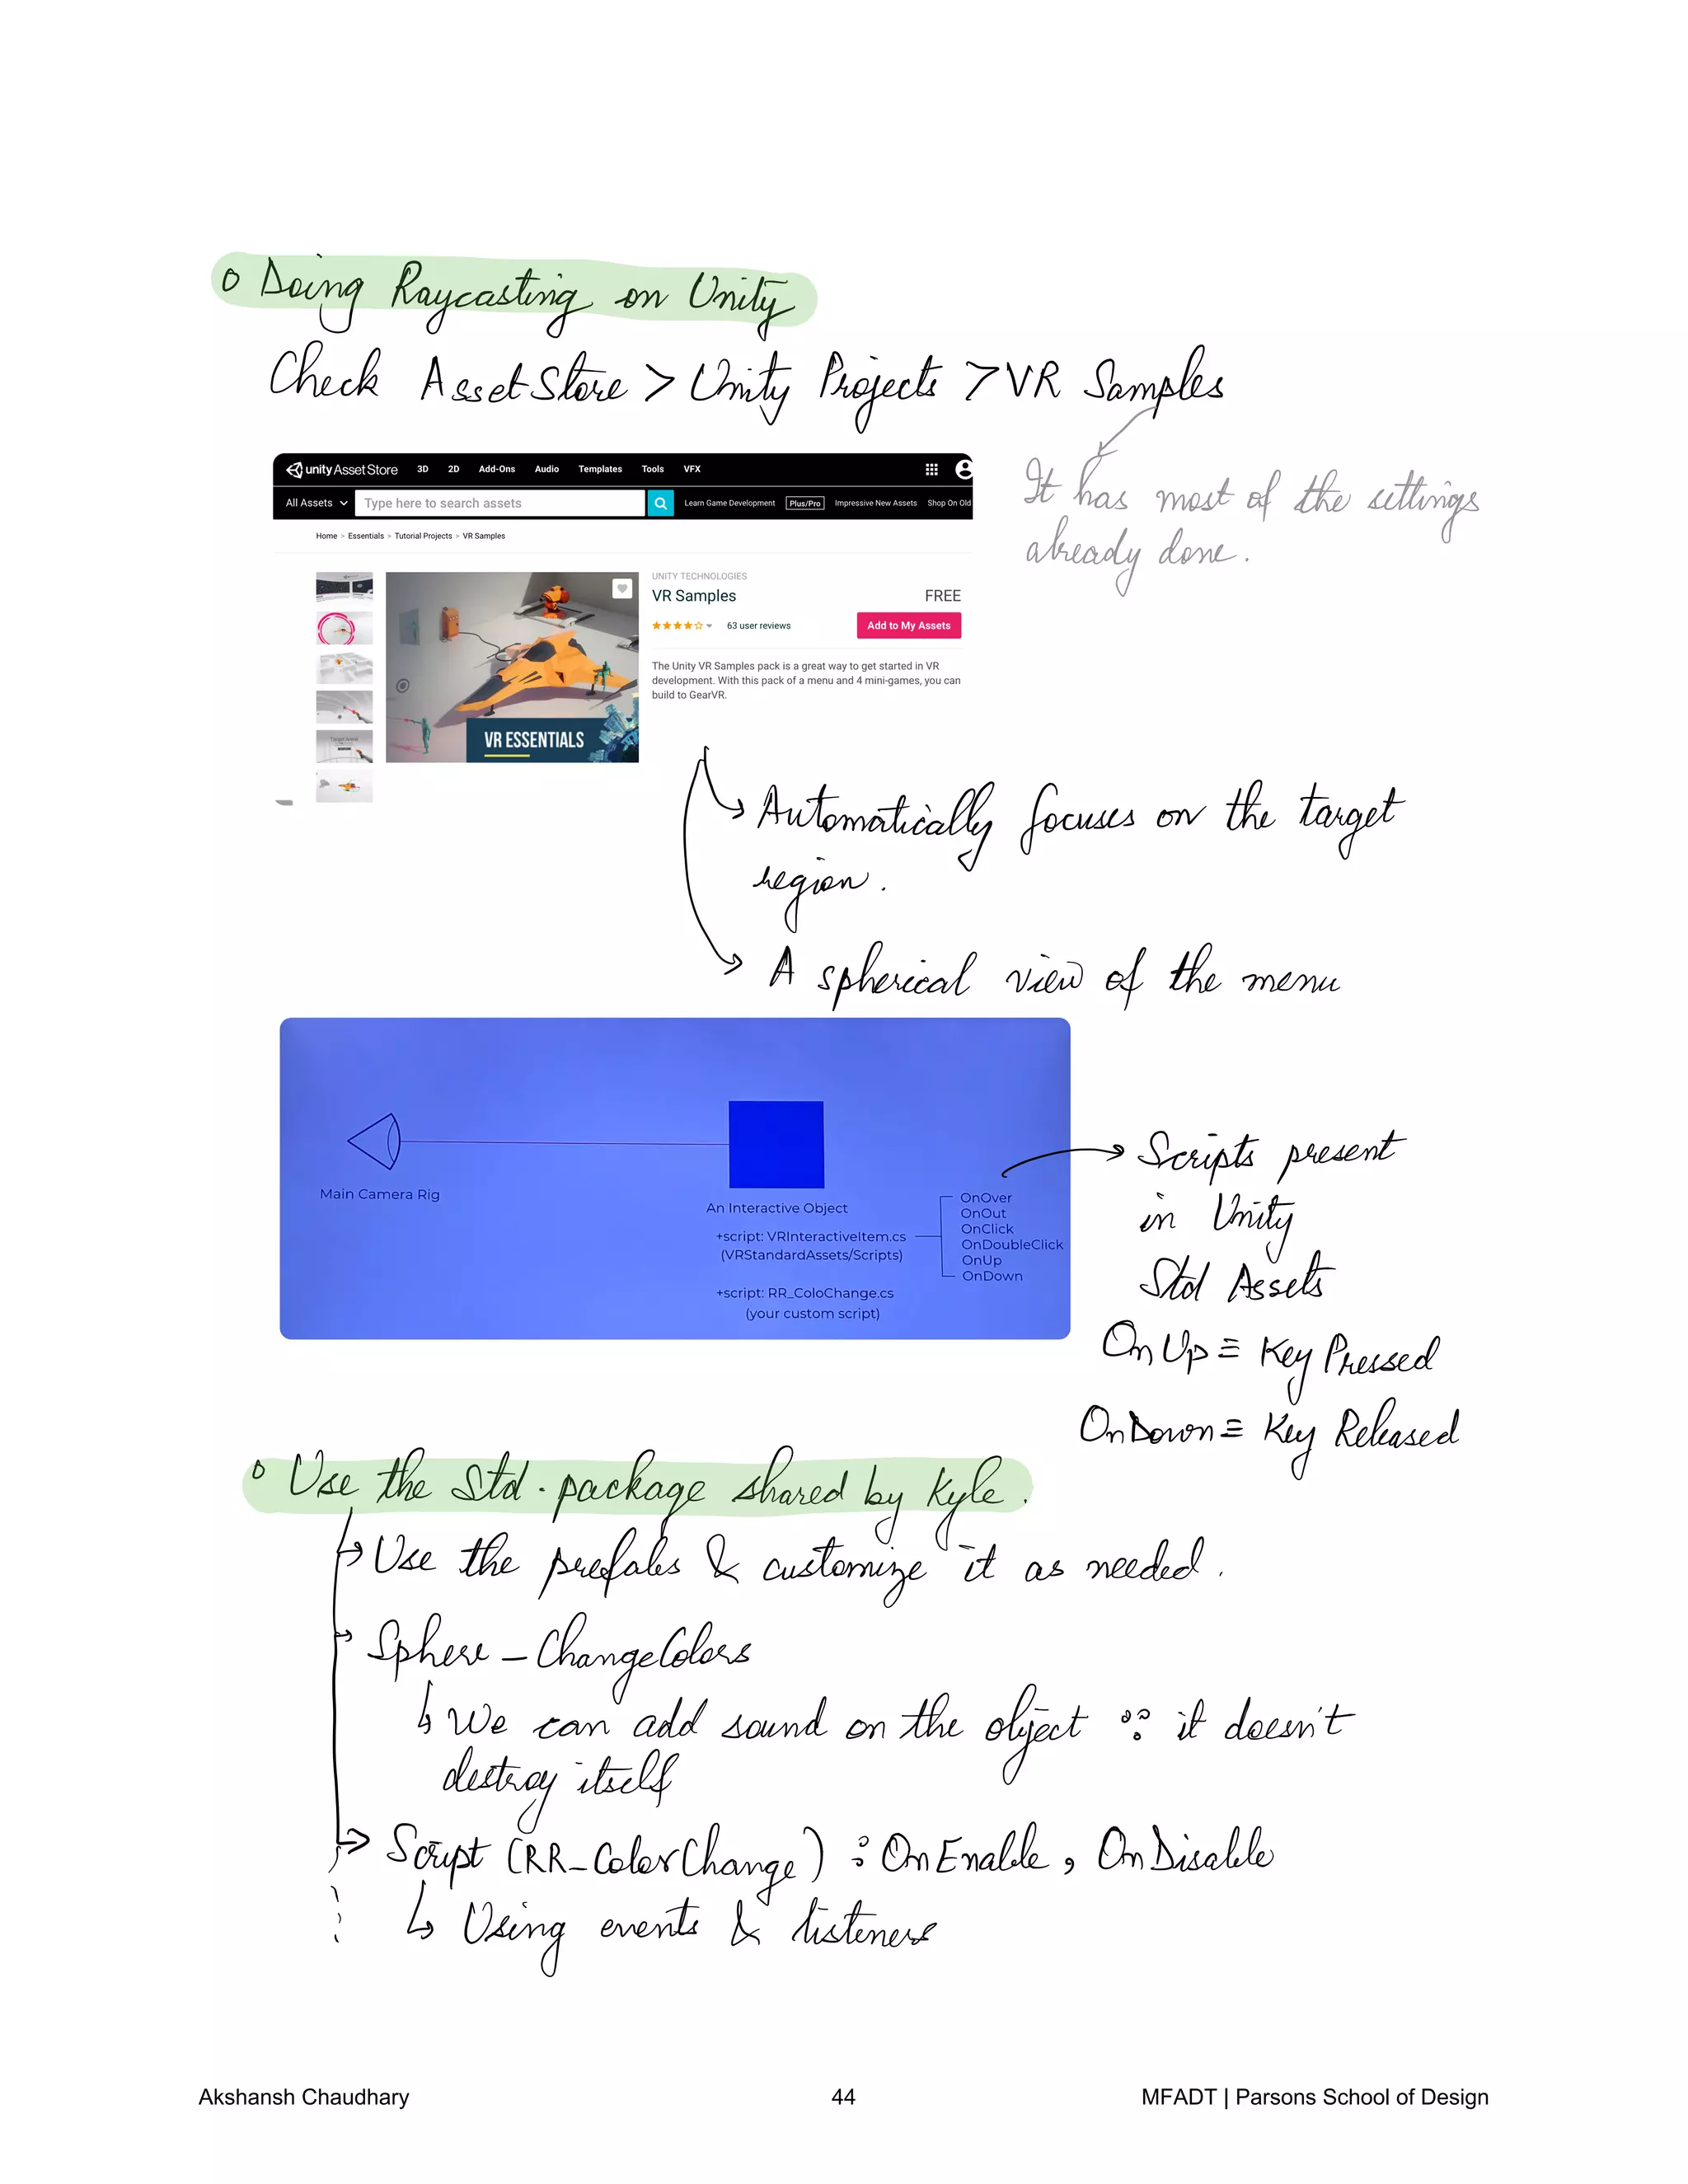 o Doing Raycasting on Unity
Check Asset Store > Unity Projects > VR Samples
It has most of the settings
already done.
unity Asset Store 3D 2D Add-Ons Audio Templates Tools VFX
All Assets Type here to search assets Learn Game Development Plus/Pro Impressive New Assets Shop On Old
Home > Essentials > Tutorial Projects > VR Samples
UNITY TECHNOLOGIES
VR Samples FREE
63 user reviews Add to My Assets
The Unity VR Samples pack is a great way to get started in VR
development. With this pack of a menu and 4 mini-games, you can
build to GearVR.
VR ESSENTIALS
Automatically focuses on the target
region.
A spherical view of the menu
Main Camera Rig
An Interactive Object
+script: VRInteractiveItem.cs
(VRStandardAssets/Scripts)
+script: RR_ColoChange.cs
(your custom script)
OnOver
OnOut
OnClick
OnDoubleClick
OnUp
OnDown
Scripts present
in Unity
Std Assets
OnUp ≡ Key Pressed
OnDown ≡ Key Released
o Use the Std. package shared by Kyle.
Use the prefabs & customize it as needed.
Sphere - ChangeColors
We can add sound on the object ∵ it doesn't
destroy itself
Script (RR_ColorChange) : OnEnable, OnDisable
Using events & listeners
Akshansh Chaudhary 44 MFADT | Parsons School of Design